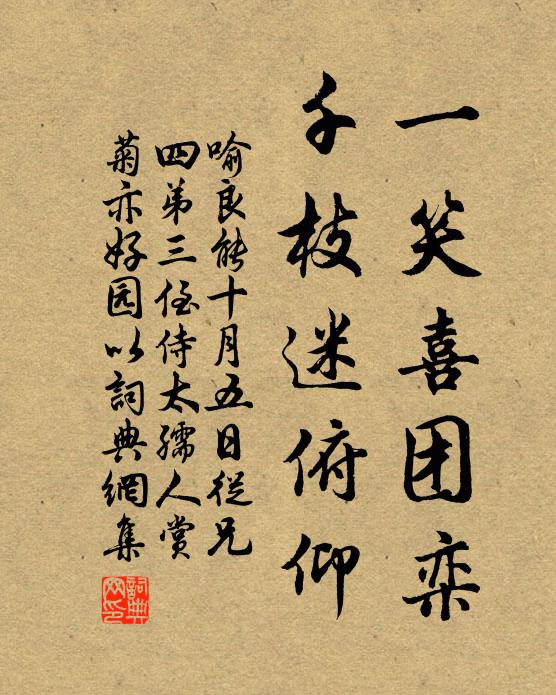 一笑喜团栾
千枝迷俯仰
喻良能十月五日從兄
四弟三侄侍太孺人賞
菊亦好园以詞典網集
詞典
网印